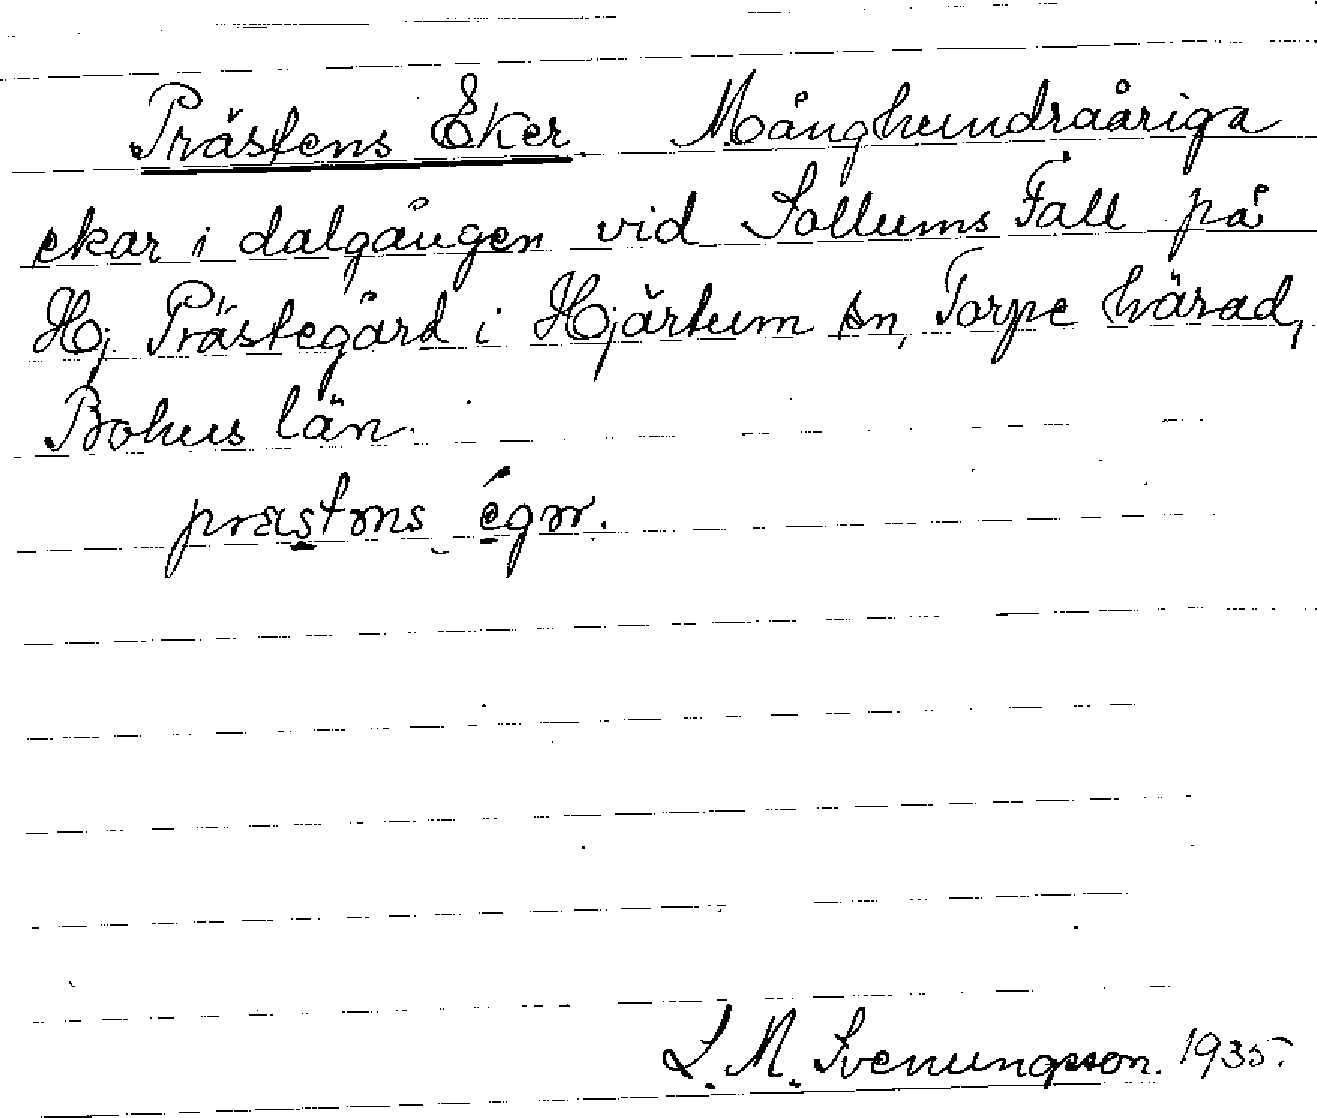 Prästens Eker. Månghundraåriga
ekar i dalgången vid Sollums Fall på
Hj. Prästegård i Hjärtum sn, Torpe härad,
Bohus län.
præstɘns égɘr.
L. M. Svenungsson. 1935.